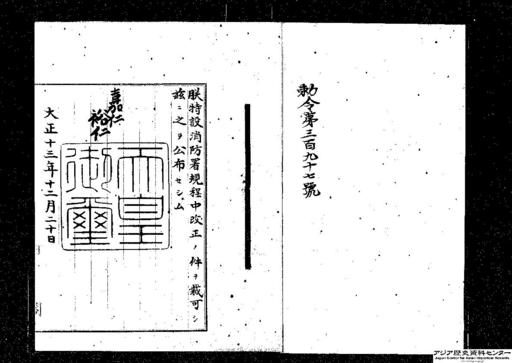 勅令第三百九十七號
朕特設消防署規程中改正ノ件ヲ裁可シ
茲ニ之ヲ公布セシム
嘉仁
裕仁
天皇
御璽
大正十三年十二月二十日
アジア歴史資料センター
Japan Center for Asian Historical Records